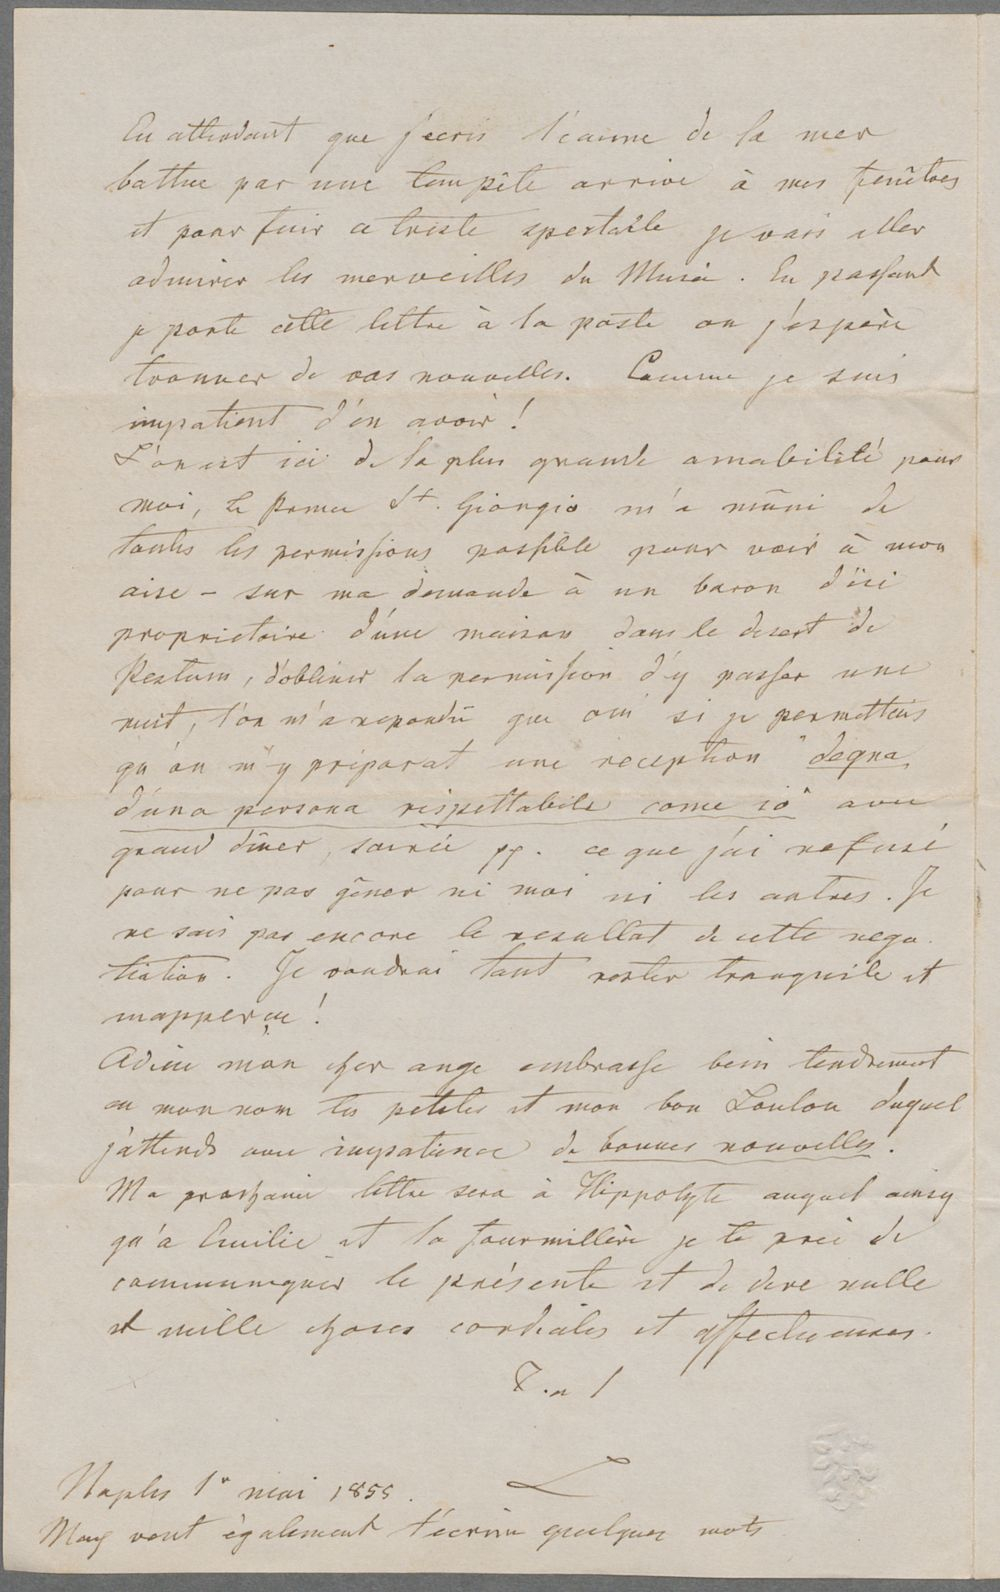 En attendant que j'ecris l'écume de la mer
battue par une tempête arrive à mes fenêtres
et pour fuir ce triste spectacle je vais aller
admirer les merveilles du Musée. En passant
je porte cette lettre à la poste ou j'espère
trouver de vos nouvelles. Comme je suis
impatient d'en avoir!
L'on est ici de la plus grande amabilité pour
moi, le Prince St. Giorgio m'a mûni de
toutes les permissions possible pour voir à mon
aise – sur ma demande à un baron d'ici
proprietaire d'une maison dans le desert de
Pestum, d'obtenir la permission d'y passer une
nuit, l'on m'a repondu que oui si je permettais
qu'on m'y préparat une reception "degna
d'una persona rispettabile come io" avec
grand dîner, soirée pp. ce que j'ai refusé
pour ne pas gêner ni moi ni les autres. Je
ne sais pas encore le resultat de cette nego-
tiation. Je voudrai tant rester tranquile et
inapperçu!
Adieu mon cher ange embrasse bein tendrement
en mon nom les petites et mon bon Loulou duquel
j'attends avec impatience de bonnes nouvelles.
Ma prochaine lettre sera à Hippolyte auquel ainsy
qu'a Emilie et la fourmillère je te prie de
communiquer la présente et de dire mille
et mille choses cordiales et affectueuses.
T. a
L
Naples 1r mai 1855.
veut également t'écrire quelques mots